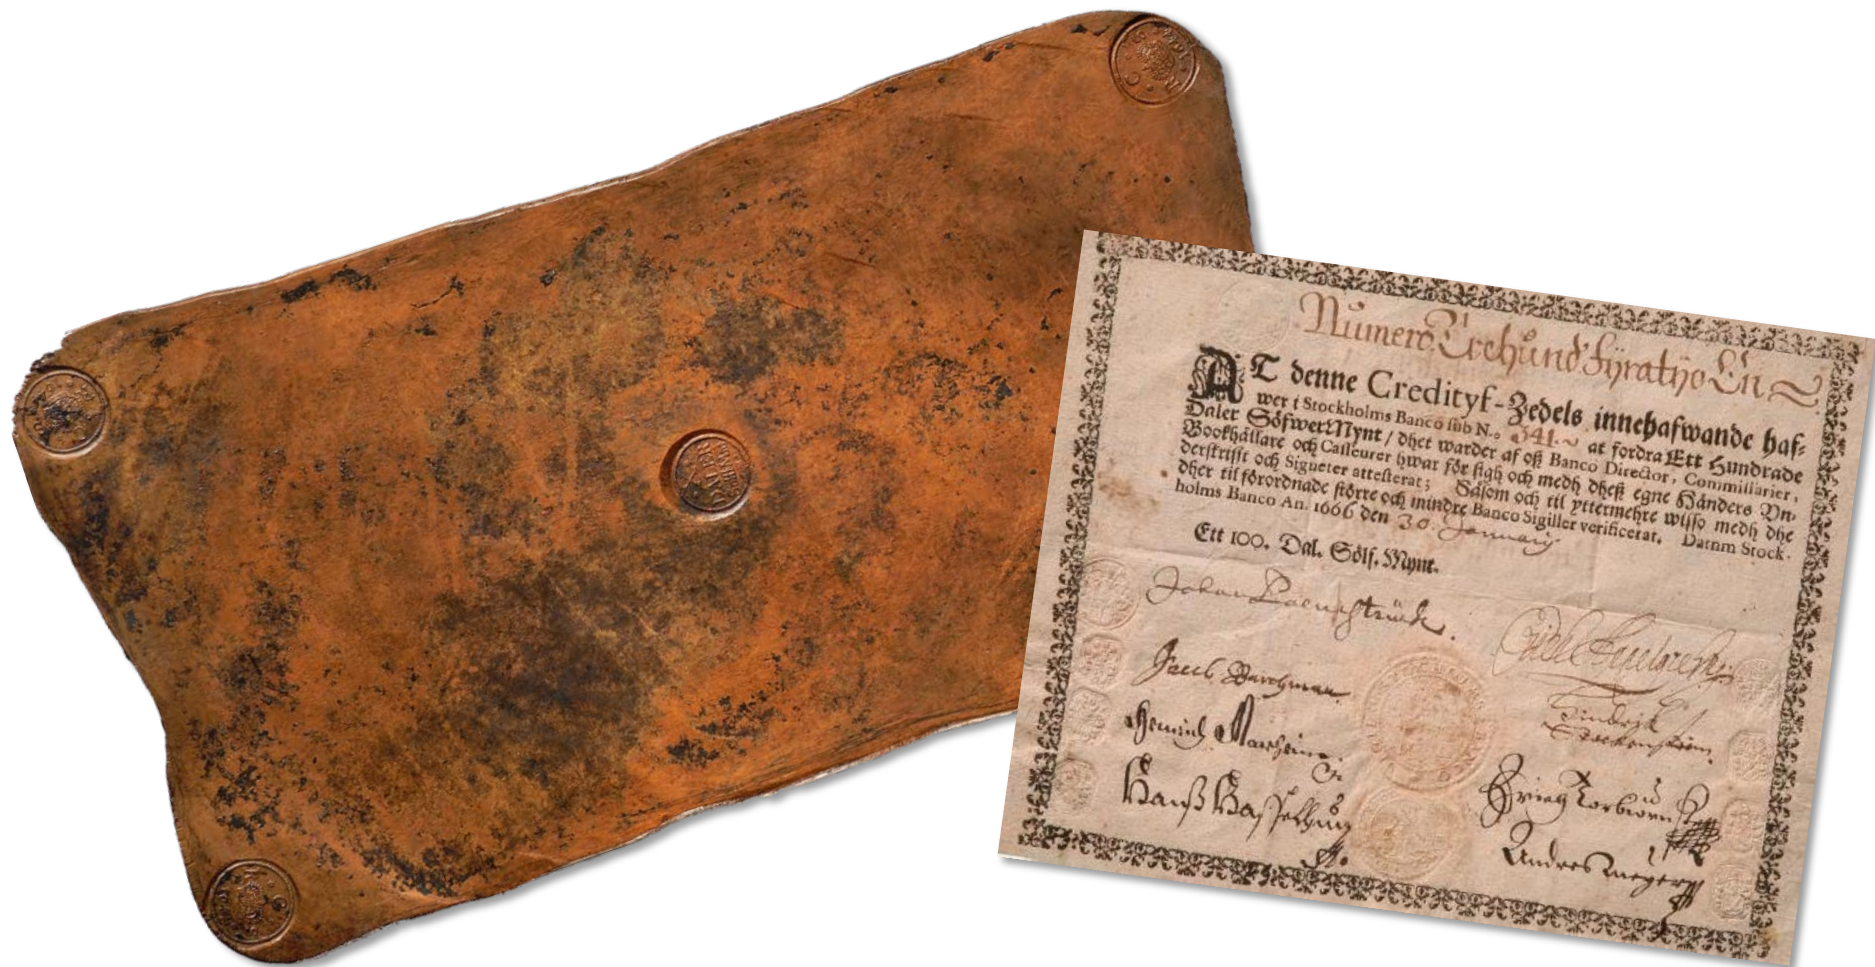 Numero Trehund Fyratijo En
AT denne Credityf-Zedels innehafwande haf-
wer i Stockholms Banco sub N.o 341.~ at fordra Ett Hundrade
Daler Söfwer Mynt / dhet warder af oß Banco Director, Commissarier,
Bookhållare och Casseurer hwar för sigh och medh dheß egne Händers Vn-
derskrifft och Signeter attesterat; Såsom och til yttermehre wisso medh dhe
dher til förordnade större och mindre Banco Sigiller verificerat. Datum Stock-
holms Banco An. 1666 den 30. January
Ett 100. Dal. Sölf. Mynt.
Johan Palmstruck.
Jacob
Hendrich
Hanß
Andres Meyer